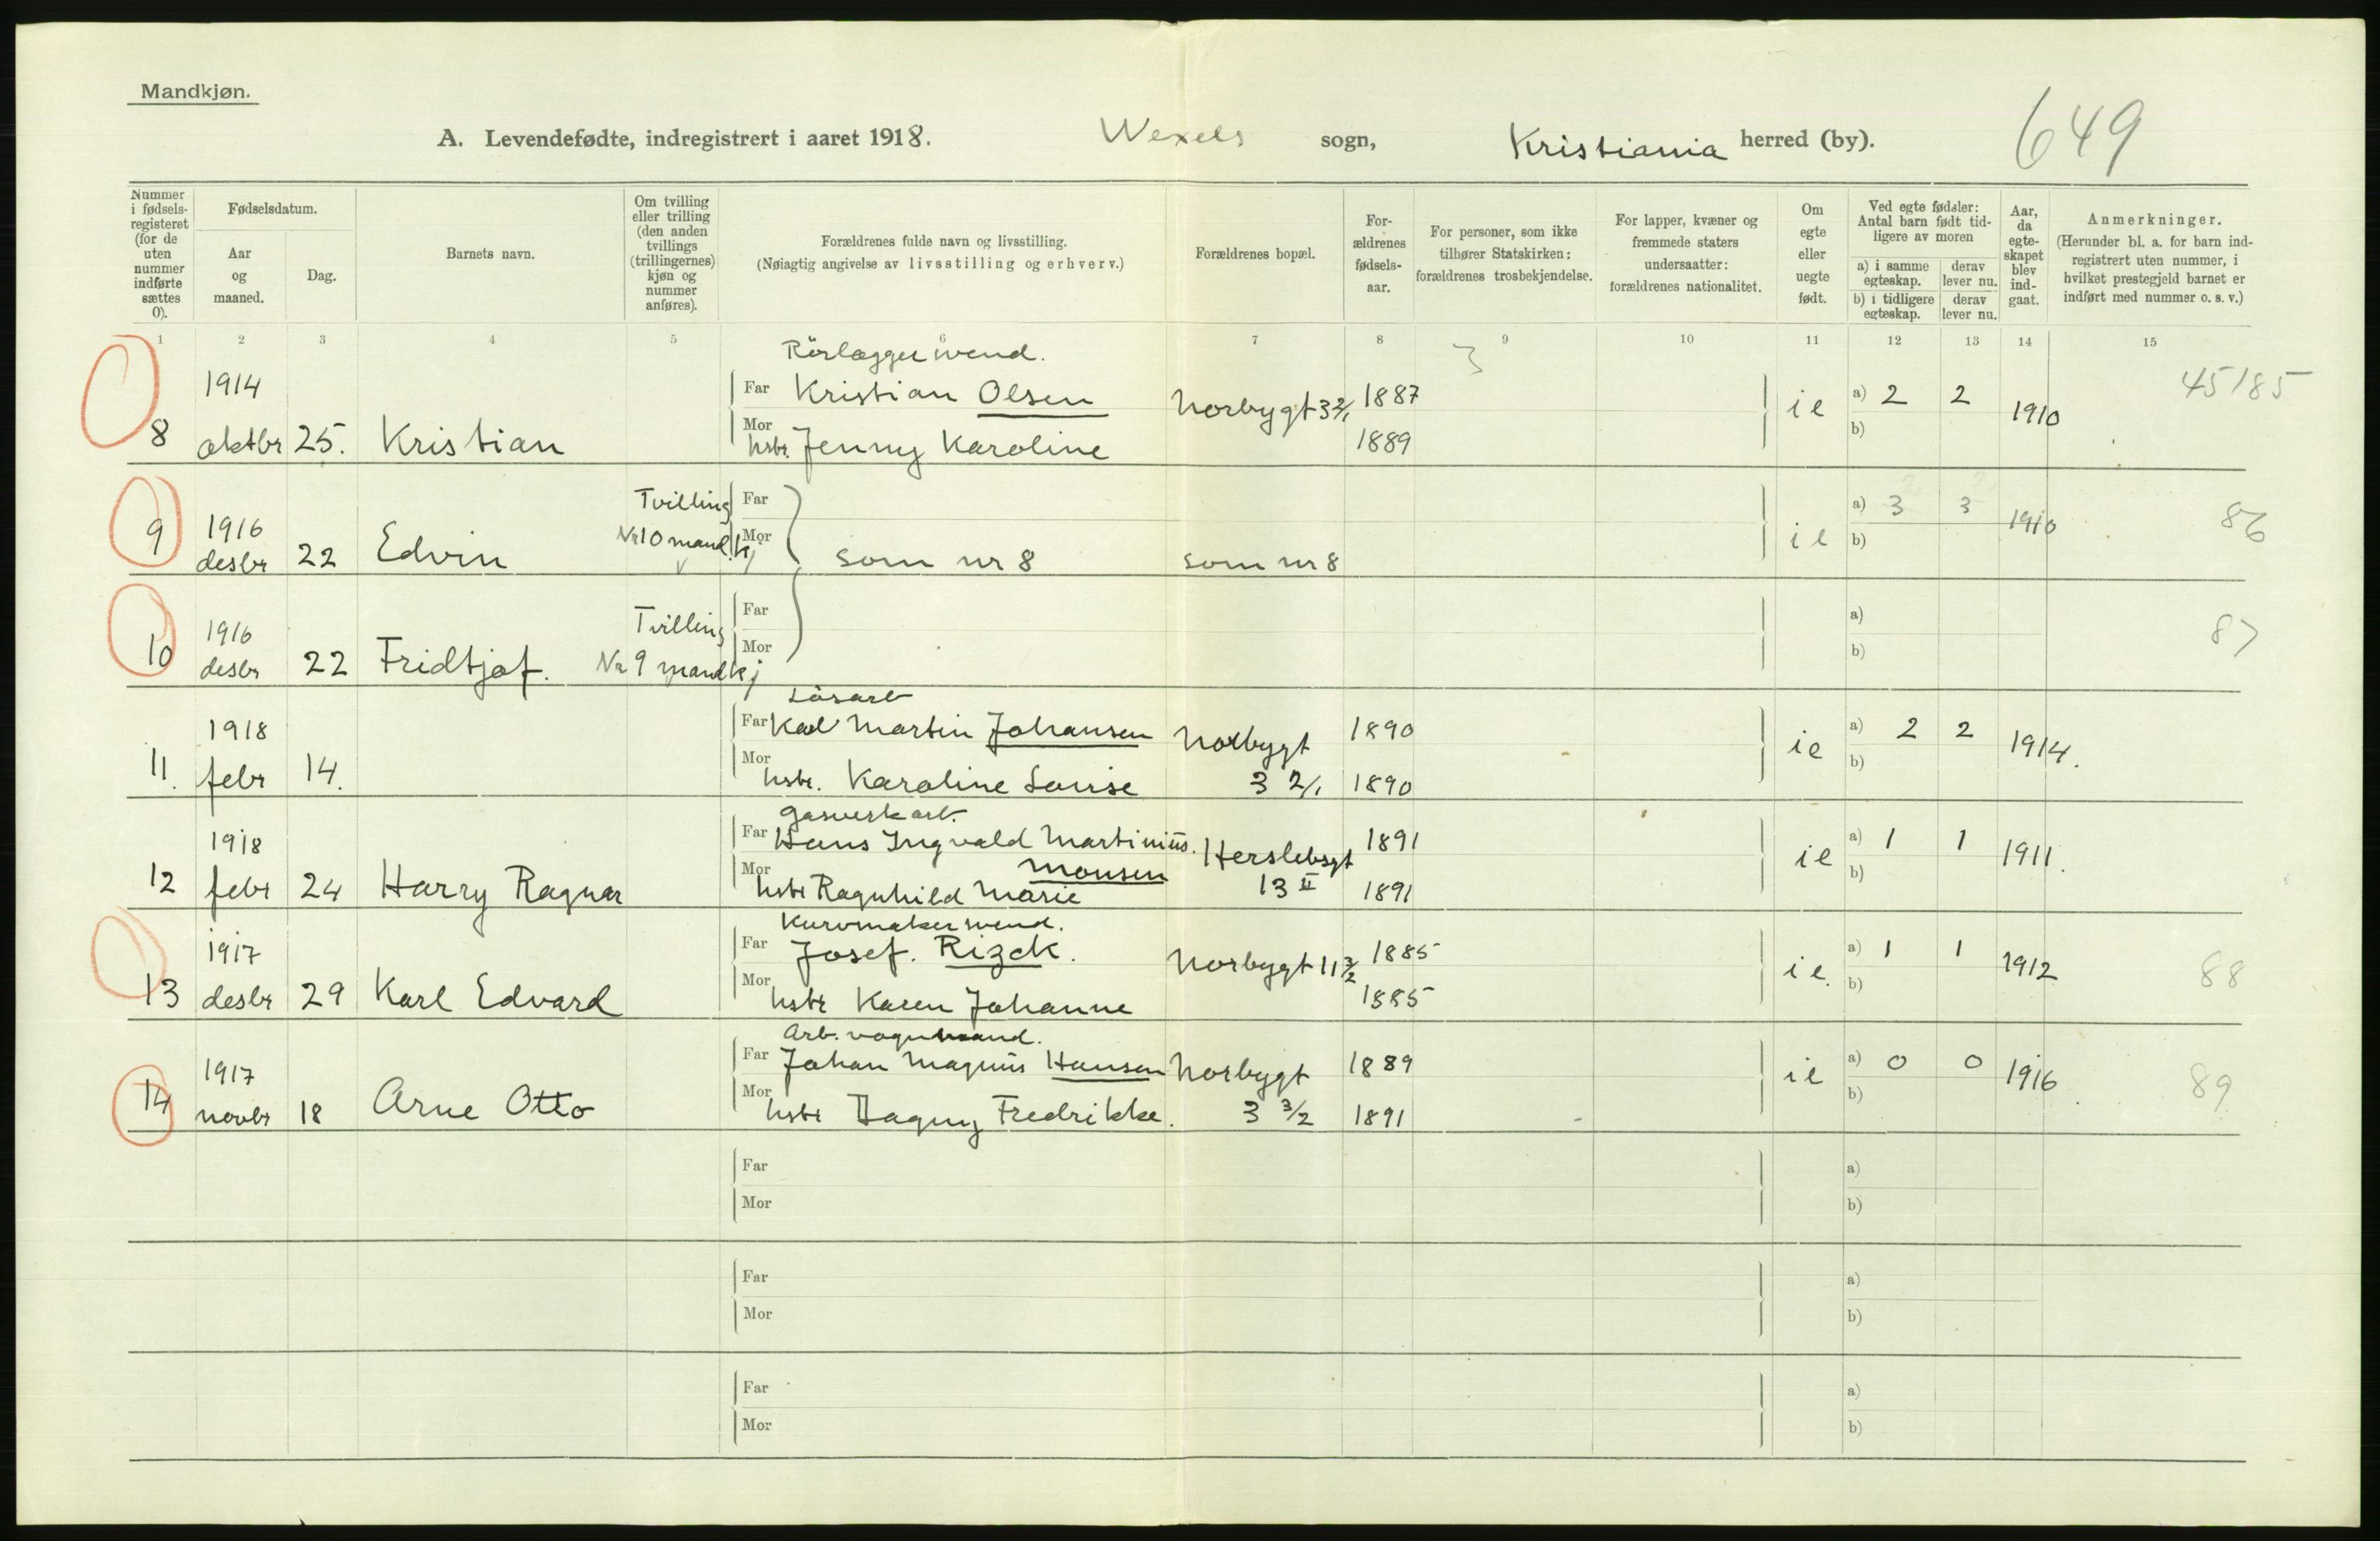 Mandkjøn.
A. Levendefødte, indregistrert i aaret 1918. Wexels sogn, Kristiania herred (by). 649
Nummer i fødsels-registeret (for de uten nummer indførte sættes 0).
Fødselsdatum.
Aar og maaned.
Dag.
Barnets navn.
Om tvilling eller trilling (den anden tvillings (trillingernes) kjøn og nummer anføres).
Forældrenes fulde navn og livsstilling.
(Nøiagtig angivelse av livsstilling og erhverv.)
Forældrenes bopæl.
For-ældrenes fødsels-aar.
For personer, som ikke tilhører Statskirken: forældrenes trosbekjendelse.
For lapper, kvæner og fremmede staters undersaatter: forældrenes nationalitet.
Om egte eller uegte født.
Ved egte fødsler: Antal barn født tid-ligere av moren
a) i samme egteskap. derav lever nu.
b) i tidligere egteskap. derav lever nu.
Aar, da egte-skapet blev ind-gaat.
Anmerkninger.
(Herunder bl. a. for barn ind-registrert uten nummer, i hvilket prestegjeld barnet er indført med nummer o. s. v.)
1 2 3 4 5 6 7 8 9 10 11 12 13 14 15
Rörlæggersvend. 3
1914 Far Kristian Olsen Norbygt 3 2/1 1887 ie a) 2 2 1910 45185
8 oktbr 25. Kristian Mor hstr. Jenny Karoline 1889 b)
Tvilling Far a) 3 3
9 1916 desbr 22 Edvin Nr 10 mandkj Mor som nr 8 som nr 8 ie b) 1910 86
Tvilling Far a)
10 1916 desbr 22 Fridtjof. Nr 9 mandkj Mor b) 87
Lösarb
1918 Far Karl Martin Johansen Norbygt 1890 ie a) 2 2 1914.
11. febr 14. Mor hstr. Karoline Louise 3 2/1 1890 b)
Gasverkarb.
1918 Far Hans Ingvald Martinius. Herslebsgt 1891 ie a) 1 1 1911.
Monsen
12 febr 24 Harry Ragnar Mor hstr Ragnhild Marie 13 II 1891 b)
Kurvmakersvend.
1917 Far Josef. Rizek. Norbygt 11 3/2 1885 ie. a) 1 1 1912 88
13 desbr 29 Karl Edvard Mor hstr Karen Johanne 1885 b)
Arb. vognmand.
1917 Far Johan Magnus Hansen Norbygt 1889 ie a) 0 0 1916 89
14 novbr 18 Arne Otto Mor hstr Dagny Fredrikke. 3 3/2 1891 b)
Far a)
Mor b)
Far a)
Mor b)
Far a)
Mor b)